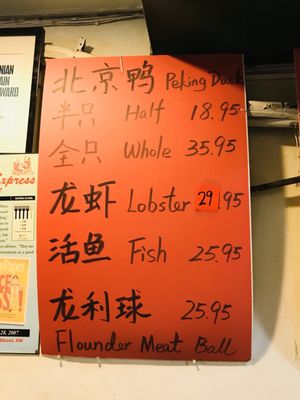 北京鸭 Peking Duck
半只 Half 18.95
全只 Whole 35.95
龙虾 Lobster 29.95
活鱼 Fish 25.95
龙利球 25.95
Flounder Meat Ball
NIAN
AIN
WARD
Express
28, 2007
Street, NW